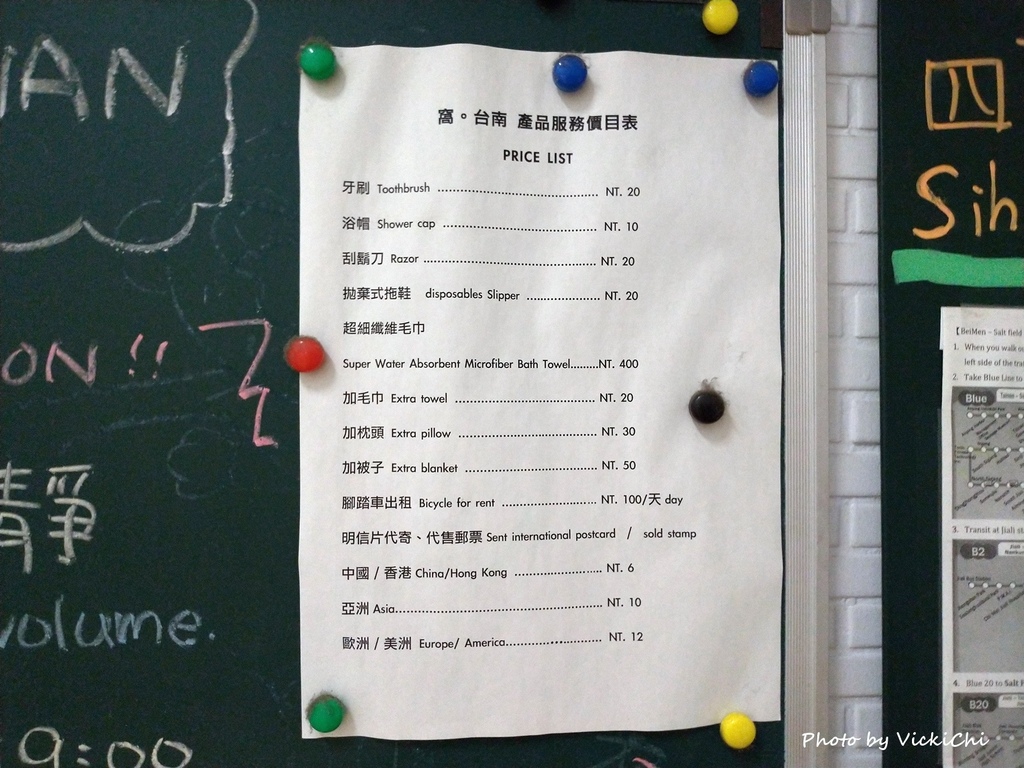 窩。台南 產品服務價目表
PRICE LIST
牙刷 Toothbrush ........................................ NT. 20
浴帽 Shower cap ........................................ NT. 10
刮鬍刀 Razor ............................................. NT. 20
拋棄式拖鞋 disposables Slipper ................... NT. 20
超細纖維毛巾
Super Water Absorbent Microfiber Bath Towel.........NT. 400
加毛巾 Extra towel .................................... NT. 20
加枕頭 Extra pillow ................................... NT. 30
加被子 Extra blanket .................................. NT. 50
腳踏車出租 Bicycle for rent ......................... NT. 100/天 day
明信片代寄、代售郵票 Sent international postcard / sold stamp
中國 / 香港 China/Hong Kong ....................... NT. 6
亞洲 Asia..................................................... NT. 10
歐洲 / 美洲 Europe/ America......................... NT. 12
AN
ON !!
靜
volume.
9:00
四
Sih
【BeiMen – Salt field
1. When you walk
left side of the
2. Take Blue Line to
Blue
3. Transit at Jiali
B2
4. Blue 20 to Salt
B20
Photo by VickiChi